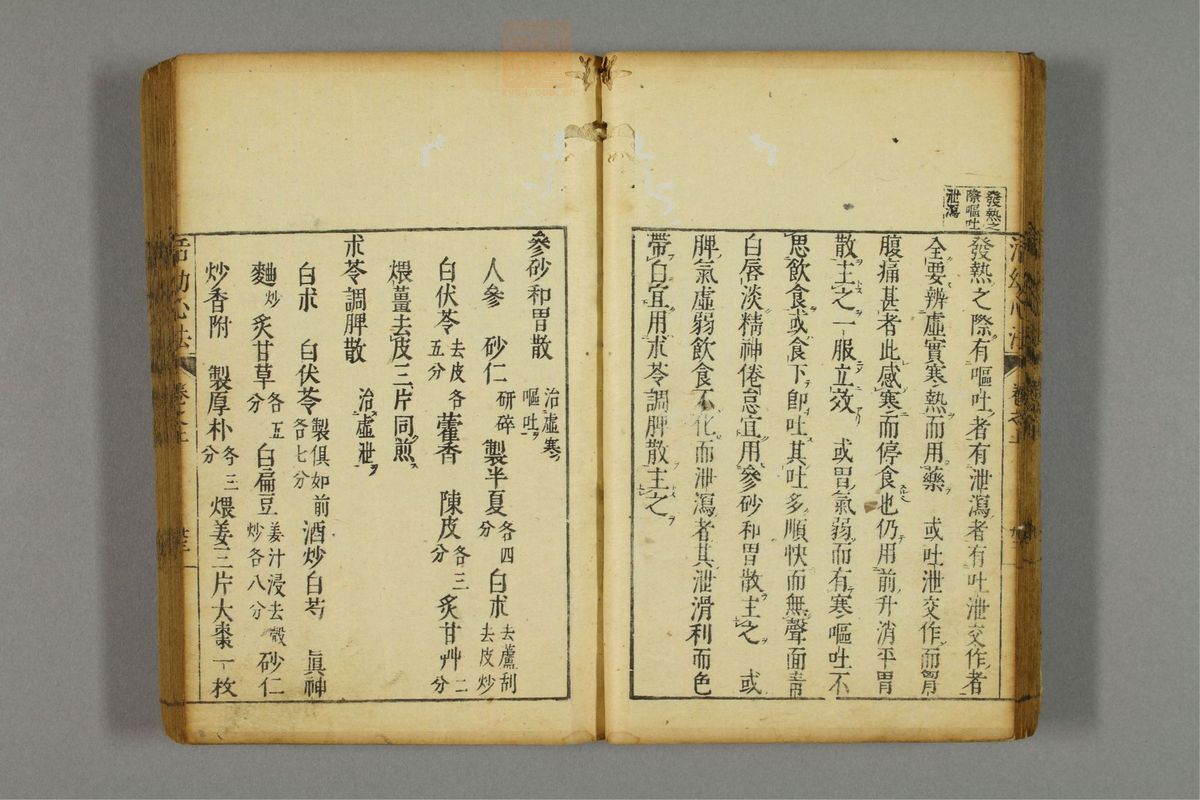 發熱之
際嘔吐
泄瀉
發熱之際有嘔吐者有泄瀉者有吐泄交作者
全要辨虛實寒熱而用藥　或吐泄交作而胃
腹痛甚者此感寒而停食也仍用前升消平胃
散主之一服立效　或胃氣弱而有寒嘔吐不
思飲食或食下即吐其吐多順快而無聲面青
白唇淡精神倦怠宜用參砂和胃散主之　或
脾氣虛弱飲食不化而泄瀉者其泄滑利而色
帶白宜用朮苓調脾散主之
參砂和胃散　治虛寒嘔吐
人參　砂仁研碎　製半夏各四分　白朮去蘆刮去皮炒
白伏苓去皮各五分　藿香　陳皮各三分　炙甘艸二分
煨薑去皮三片同煎
朮苓調脾散　治虛泄
白朮　白伏苓製俱如前各七分　酒炒白芍　眞神
麯炒　炙甘草各五分　白扁豆姜汁浸去殼炒各八分　砂仁
炒香附　製厚朴各三分　煨姜三片大棗一枚
活幼心法　卷之